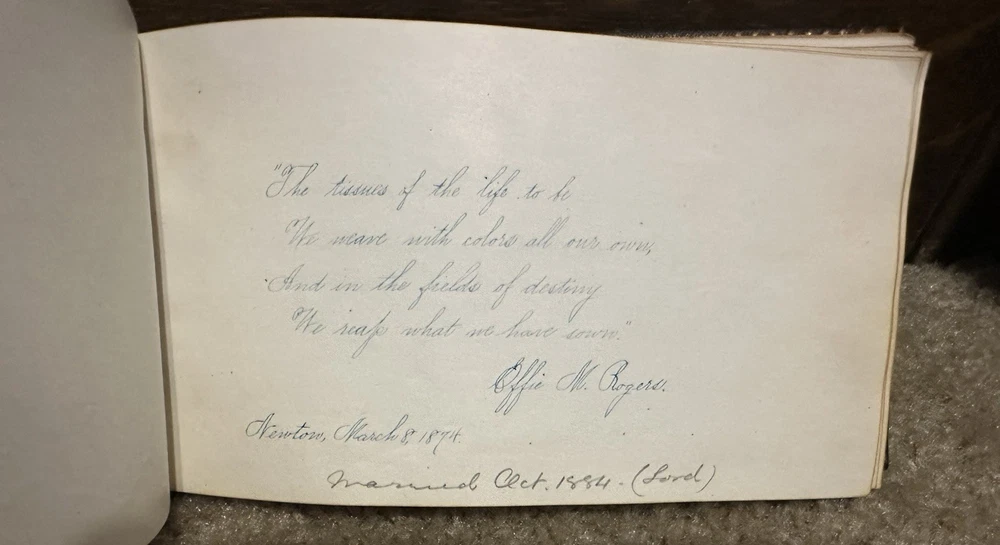 "The tissues of the life to be
We weave with colors all our own,
And in the fields of destiny
We reap what we have sown."
Effie M. Rogers.
Newton, March 8, 1874.
Married Oct. 1884. (Lord)